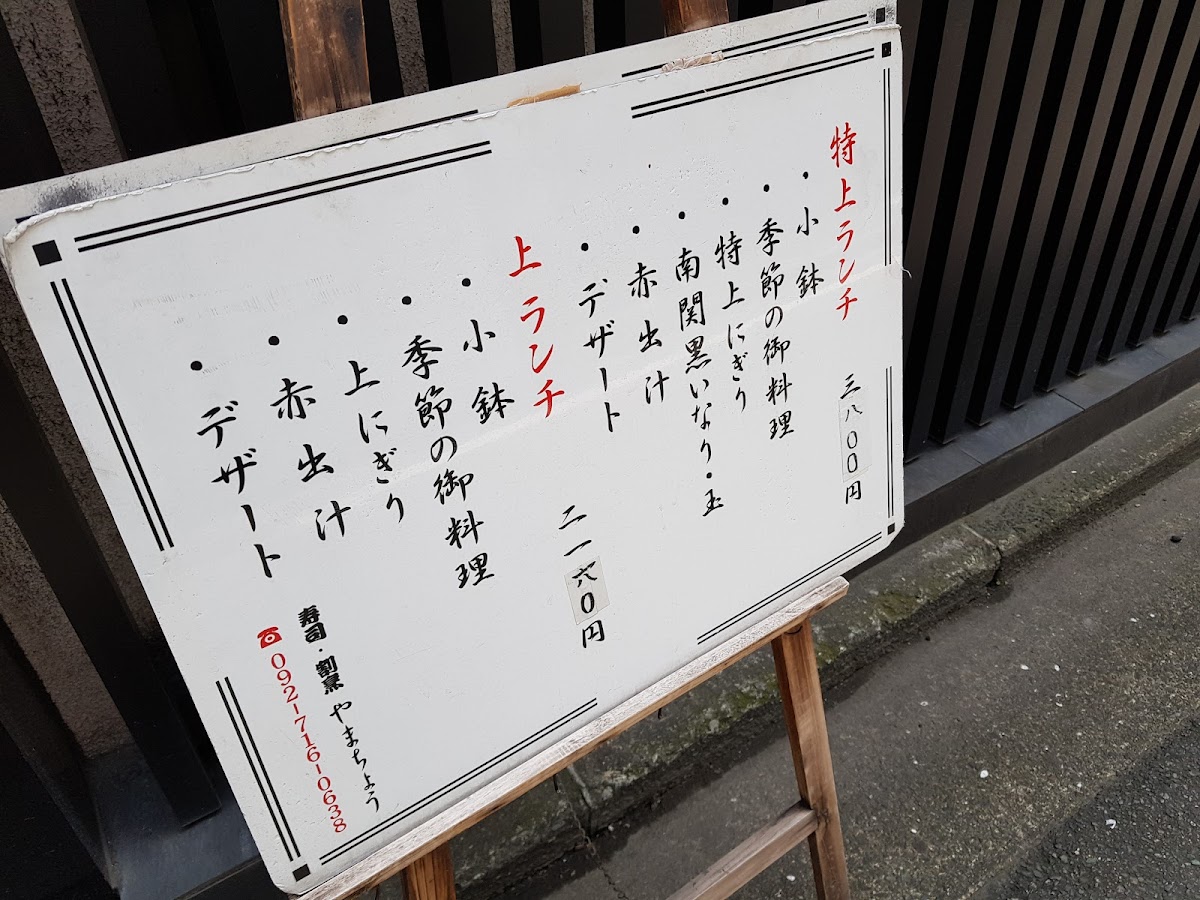 特上ランチ 三八〇〇円
・小鉢
・季節の御料理
・特上にぎり
・南関黒いなり・玉
・赤出汁
・デザート
上ランチ 二一六〇円
・小鉢
・季節の御料理
・上にぎり
・赤出汁
・デザート
寿司・割烹 やまちょう
☎092-716-0638